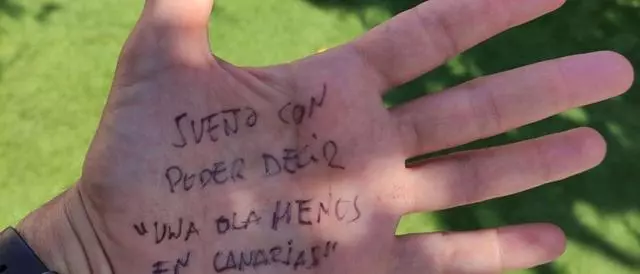 SUEÑO CON
PODER DECIR
"UNA OLA MENOS
EN CANARIAS"